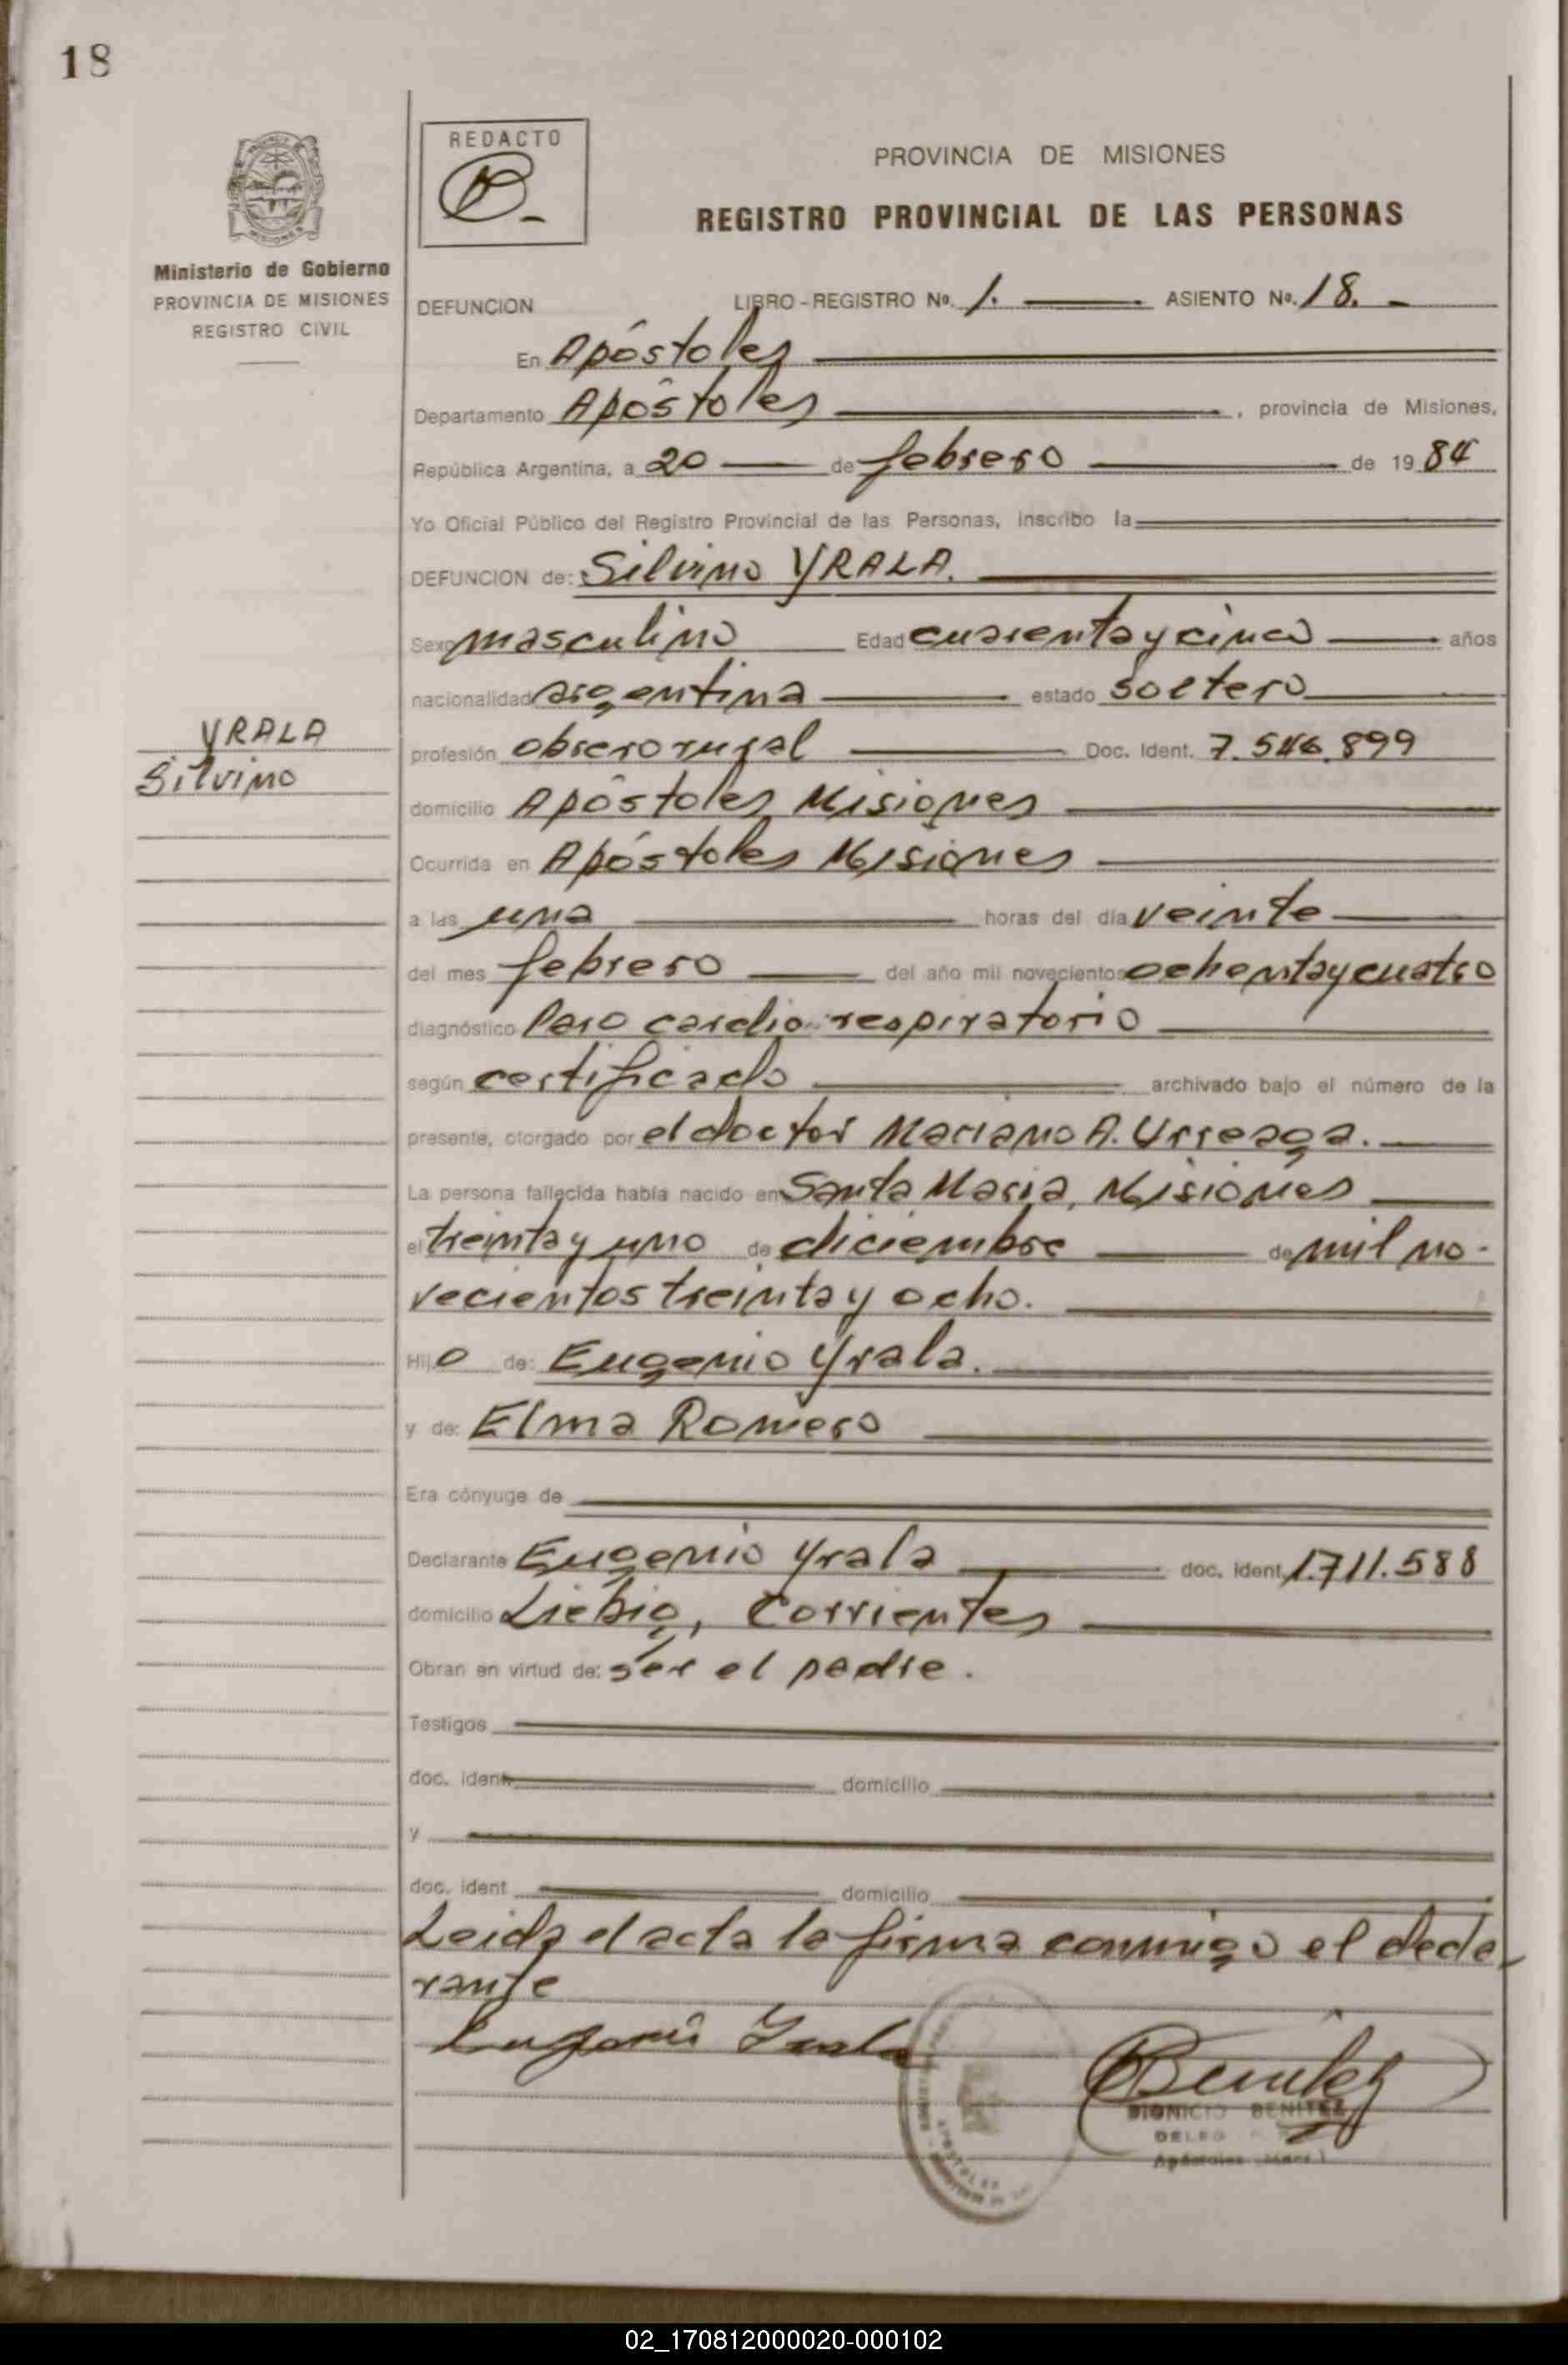 18
REDACTO
PROVINCIA DE MISIONES
REGISTRO PROVINCIAL DE LAS PERSONAS
Ministerio de Gobierno
PROVINCIA DE MISIONES
REGISTRO CIVIL
DEFUNCION LIBRO - REGISTRO No. 1. ASIENTO No. 18.
En Apóstoles
Departamento Apóstoles, provincia de Misiones,
República Argentina, a 20 de febrero de 1984
Yo Oficial Público del Registro Provincial de las Personas, inscribo la
DEFUNCION de: Silvino YRALA.
Sexo masculino Edad cuarenta y cinco años
nacionalidad argentina estado soltero
YRALA
Silvino
profesión obrero rural Doc. Ident. 7.546.899
domicilio Apóstoles Misiones
Ocurrida en Apóstoles Misiones
a las una horas del día veinte
del mes febrero del año mil novecientos ochenta y cuatro
diagnóstico Paro cardio-respiratorio
según certificado archivado bajo el número de la
presente, otorgado por el doctor Mariano A. Urreaga.
La persona fallecida había nacido en Santa María, Misiones
el treinta y uno de diciembre de mil no-
vecientos treinta y ocho.
Hijo de: Eugenio Yrala.
y de: Elma Romero
Era cónyuge de
Declarante Eugenio Yrala doc. ident. 1.711.588
domicilio Liebig, Corrientes
Obran en virtud de: ser el padre.
Testigos
doc. ident. domicilio
y
doc. ident domicilio
Leida el acta la firma conmigo el decla
rante
Eugenio Yrala
Benitez
DIONICIO BENITEZ
APOSTOLES
02_170812000020-000102